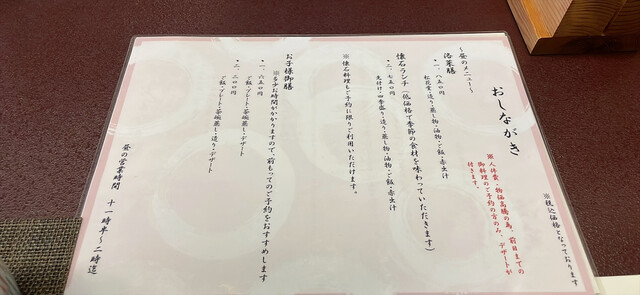 おしながき
※税込価格となっております
※人件費・物価高騰の為、前日までの
御料理のご予約の方のみ、デザートが
付きます。
〜昼のメニュー〜
洛菜膳
・一、八五〇円
松花堂・造り・蒸し物・油物・ご飯・赤出汁
懐石ランチ(低価格で季節の食材を味わっていただきます)
・二、七五〇円
先付け・四季盛り・造り・蒸し物・油物・ご飯・赤出汁
※懐石料理もご予約に限りご利用いただけます。
お子様御膳
※多少お時間がかかりますので、前もってのご予約をおすすめします
・一、六五〇円
ご飯・プレート・茶碗蒸し・デザート
・二、二〇〇円
ご飯・プレート・茶碗蒸し・造り・デザート
昼の営業時間 十一時半〜二時迄